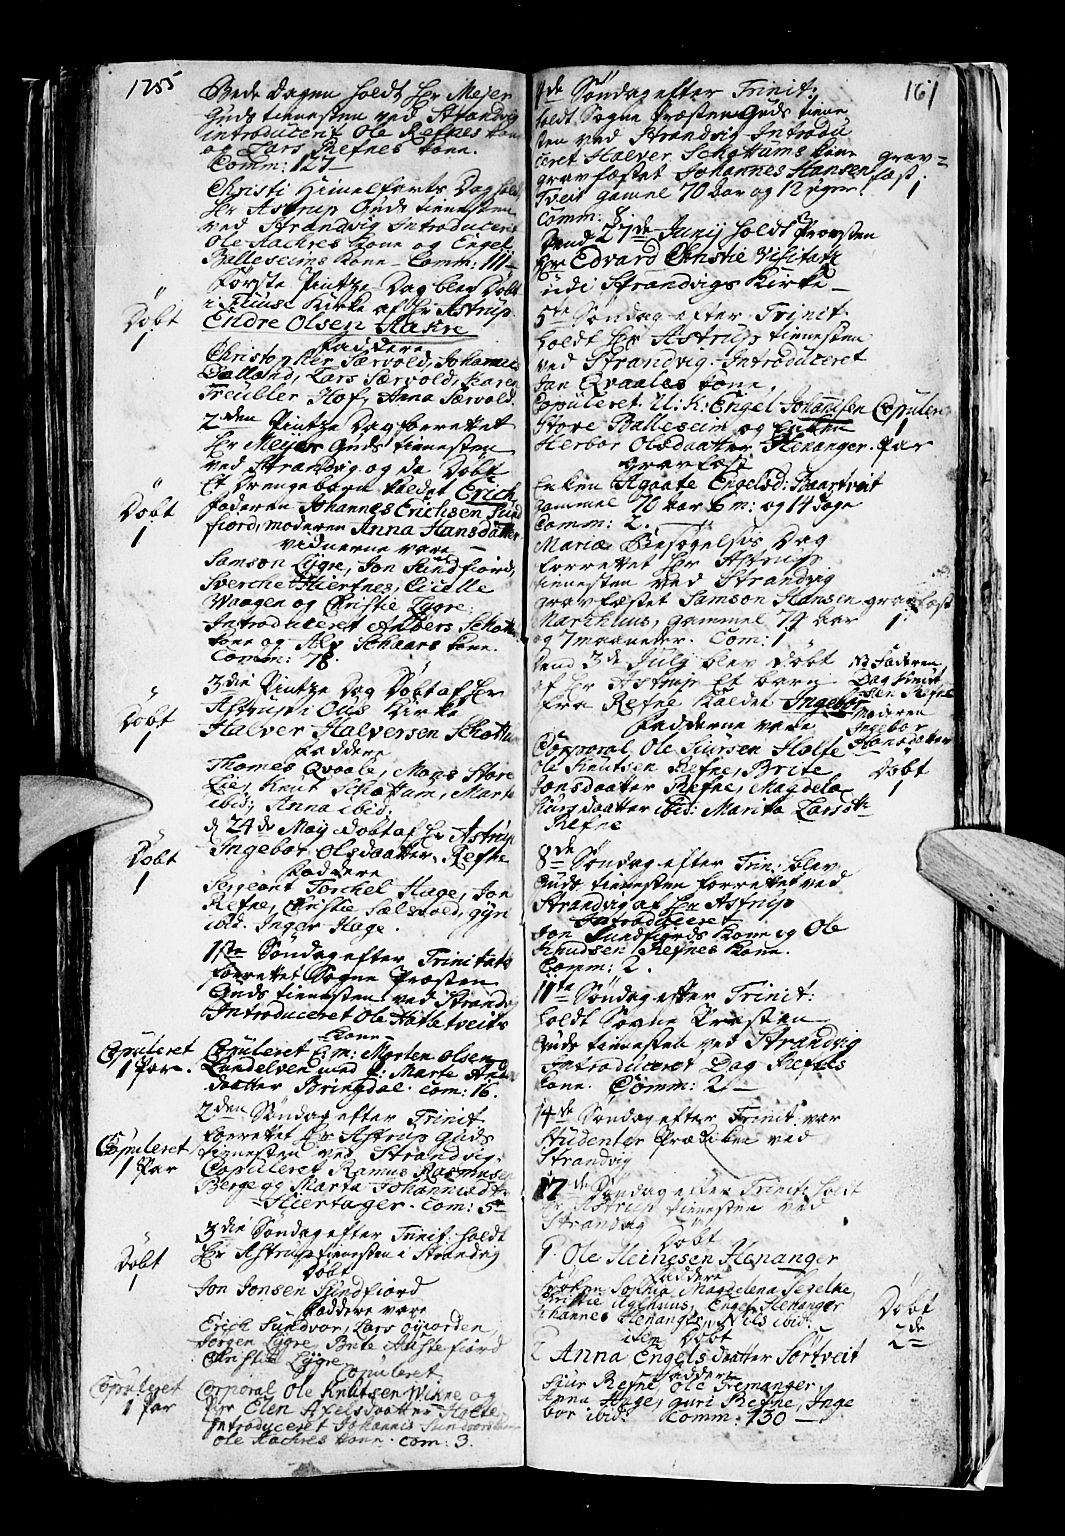 1755
Bede Dagen holdt Hr Mejer
Guds tienesten ved Strandvig
introducent Ole Refnes kone
og Lars Refnes kone.
Comm: 127 -
Christi Himelferts Dag holdt
Hr Astrup Guds tienesten
ved Strandvig Introduceret
Ole Aachres kone og Engel
Balleseims kone - Comm: 111 -
Første Pintze Dag blev Døbt
i Kirke af Hr Astrup
Døbt
1
Endre Olsen Aakre
Faddere
Christopher Særvold, Johannes
Dalland, Lars Særvold, Karen
Treubler Hof, Anna Særvold.
2den Pintze Dag forrettet
Hr Meyer Guds tienesten
ved Strandvig og da Døbt
Døbt
1
Et Drengebarn kaldet Erich,
faderen Johannes Erichsen Sund
fiord, moderen Anna Hansdatter
vidnerne vare
Samson Lygre, Jon Sundfiord,
Sverche Hiertnes, Cicelle
Waagen og Christie Lygre:
Introduceret Anbers Schottum
kone og Alv Schaars kone.
Comm: 78.
3die Pintze Dag Døbt af Hr
Astrup i Ous Kirke
Døbt
1
Halver Halversen Schottum
Faddere
Thomas Qvaale, Mons Store
Lie, Knut Schottum, Marta
ibid; Anna ibid.
d 24de Maij Døbt af Hr Astrup
Døbt
1
Ingebor Olsdaatter, Refne
Faddere
Sergeant Torchel Hage, Jon
Refne, Christie Sælevold, Gyri
ibid. Inger Hage.
1ste Søndag efter Trinitatis
forrettet Sogne Præsten
Guds tienesten ved Strandvig
Introduceret Ole Hatletveits
kone
Copuleret
1 Par.
Copuleret Em: Morten Olsen
Lundelven med P: Marte And
daatter Bringdal. com: 16.
2den Søndag efter Trinit
forrettet Hr Astrup Guds
tienesten ved Strandvig:
Copuleret
1 Par
Copuleret Ramus Rasmusen
Berge og Marta Johannisdtr
Hiertager. com: 5
3die Søndag efter Trinit: holdt
Hr Astrup tienesten i Strandvig
Døbt
1
Døbt
Jon Jonsen Sundfiord
Faddere vare
Erich Sundvor, Lars Gjorden
Jørgen Lygre, Brite Hustefiord
Christie Lygre
Copuleret
Copuleret
1 Par
Corporal Ole Knutsen Vikne og
Elen Axelsdaatter Holte.
Introduceret Johannis Sundvors kone
Ole Aachres kone. com: 3.
161
4de Søndag efter Trinit:
holdt Sogne Præsten Guds tiene
sten ved Strandvig Introdu
ceret Halver Schottums kone
gravfæstet Johannes Hansen
Tveit gamel 70 Aar og 12 uger.
grav=
fæst.
1
Comm: 8.
Dend 27de Junij holdt Provsten
Hr Edvard Christie Visitatz
udi Strandvigs Kirke -
5te Søndag efter Trinit.
holdt Hr Astrup tienesten
ved Strandvig. Introduceret
Jan Qvaales kone.
Copuleret U: K: Engel Johannisen
Store Balleseim og Enken
Herbor Olsdaatter Henanger.
Copuler
1
Par
Gravfæst
Enken Agaate Engelsd: Skaartveit
Gammel 70 Aar 6 m: og 14 Dage
Comm: 2.
Mariæ Besøgelsis Dag
forrettet Hr Astrup
tienesten ved Strandvig
gravfæstet Samson Hansen
Marchhus, gammel 74 Aar
og 7 maaneder. Com: 1
gravfæst
1.
Dend 3de Julij blev Døbt
af Hr Astrup Et barn
fra Refne kaldet Ingebor
NB Faderen
Dag Knut
sen Refne
Moderen
Ingebor
Hansdatter
Døbt
1
Fadderne vare
Copporal Ole Siursen Holte
Ole Knutsen Refne, Brite
Jonsdaatter Refne, Magdela
Siursdaatter ibid: Marita Larsdtr
Refne
8de Søndag efter Trin: blev
Guds tienesten forrettet ved
Strandvig af Hr Astrup
Introduceret
Jon Sundfiords kone og Ole
Knudsen Refnes kone.
Comm: 2.
11te Søndag efter Trinit:
holdt Sogne Præsten
Guds tienesten ved Strandvig
Introduceret Dag Refnes
kone. Comm: 2 -
14de Søndag efter Trinit: var
Studenter Prædiken ved
Strandvig
17de Søndag efter Trinit: holdt
Hr Astrup tienesten ved
Strandvig
Døbt
1. Ole Heinesen Henanger
Faddere
Sophia Magdelena Segelke,
Christie Ugehuus, Engel Henanger
Johannes Henanger, Nils ibid:
Døbt
2de
item Døbt
2 Anna Engels daatter Sørtveit
Faddere
Siur Refne, Ole Tremanger,
Anna Hage, guri Refne, Inge
bor ibid: Comm: 130 -